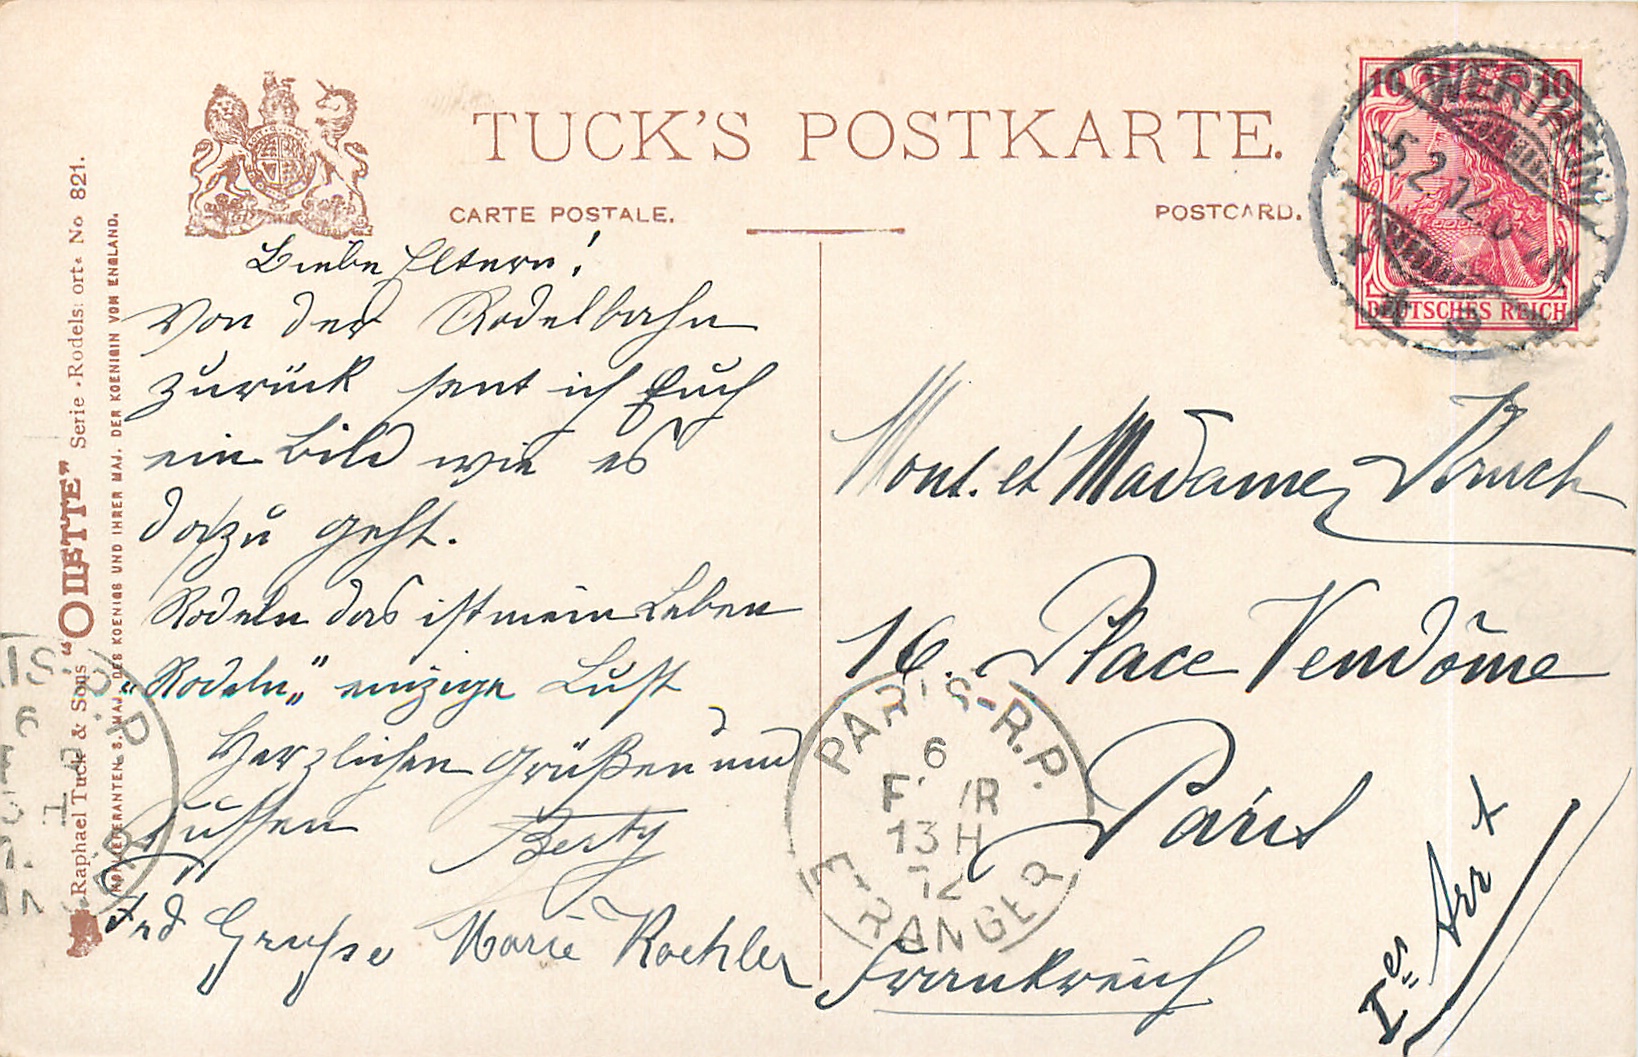 TUCK'S POSTKARTE.
CARTE POSTALE.
POSTCARD.
Raphael Tuck & Sons "OILETTE" Serie "Rodelsport" No 821.
HOFLIEFERANTEN S. MAJ. DES KOENIGS UND IHRER MAJ. DER KOENIGIN VON ENGLAND.
Liebe Eltern!
Von der Rodelbahn
zurück sent ich Euch
ein Bild wie es
dazu geht.
Rodeln das ist mein Leben
"Rodeln" einzige Lust
Herzlichen Grüßen und
Küssen Berty
Frd Grusse Marie Koehler
10 10
DEUTSCHES REICH
WERTHEIM
5.2.12. 6-7 N
Mons. et Madame Bruch
16. Place Vendôme
Paris
Frankreich
Ier Arr t
PARIS-R.P.
6
FEVR
13H
12
ETRANGER